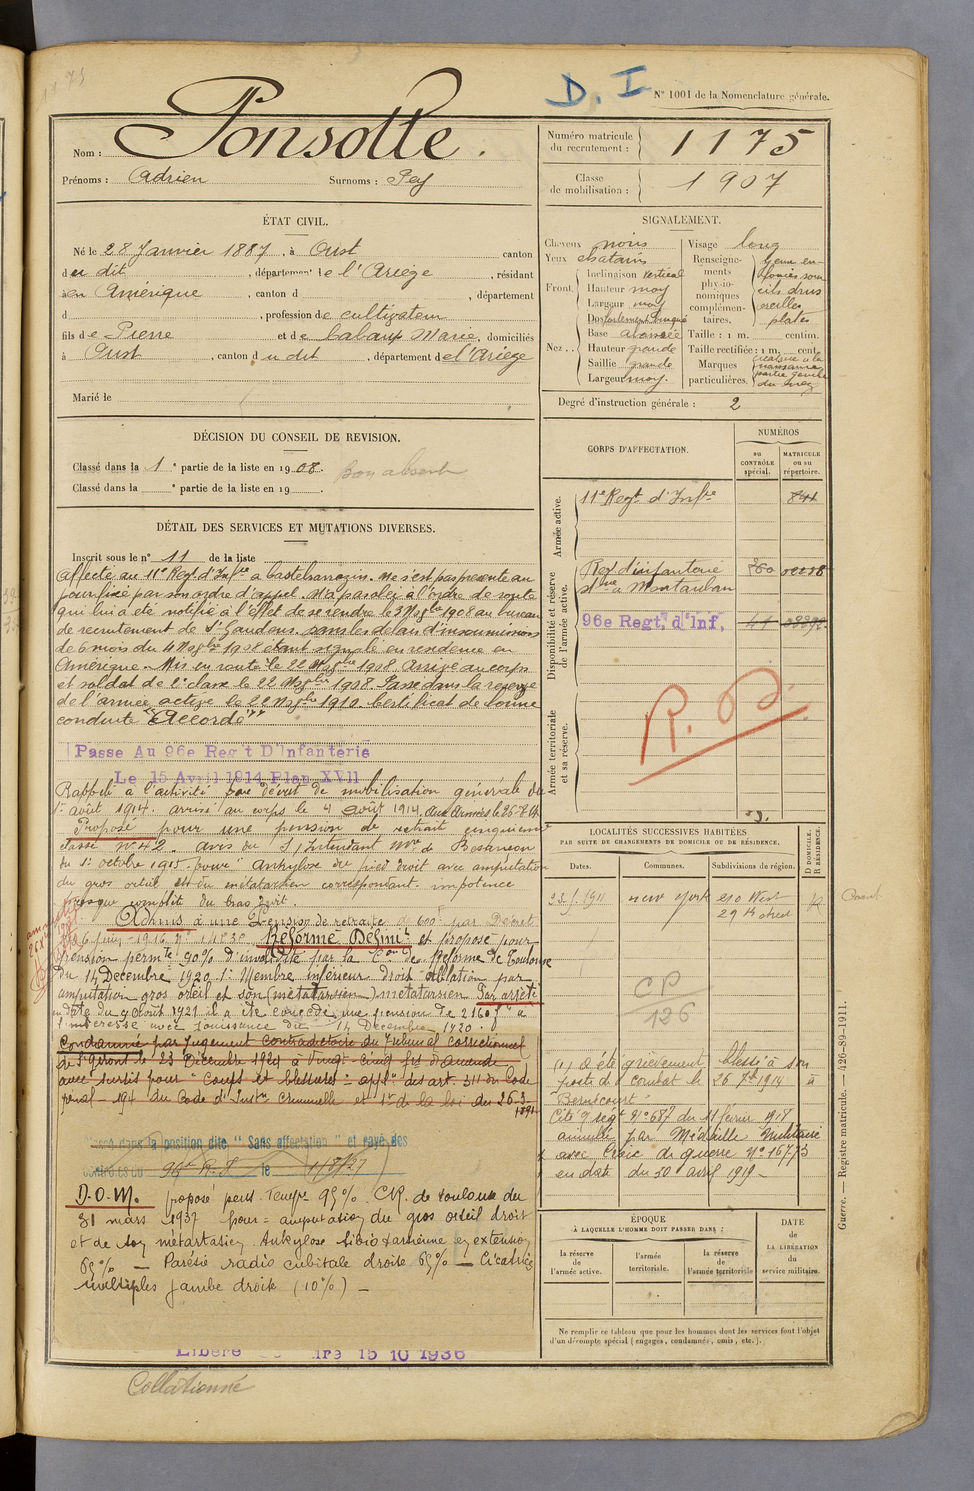 D. I
N° 1001 de la Nomenclature générale.
Nom : Ponsolle.
Prénoms : Adrien Surnoms : Pey
Numéro matricule du recrutement : 1175
Classe de mobilisation : 1907
ÉTAT CIVIL.
Né le 28 Janvier 1887, à Oust canton
du dit, département de l'Ariège, résidant
à en Amérique, canton d , département
d , profession de cultivateur
fils de Pierre et de Marie, domiciliés
à Oust, canton du dit, département de l'Ariège
Marié le
SIGNALEMENT.
Cheveux noirs
Yeux chatains
Front.
Inclinaison vertical
Hauteur moy
Largeur moy
Nez..
Dos
Base
Hauteur grande
Saillie grande
Largeur moy.
Visage long
Renseignements physionomiques complémentaires.
yeux en-
foncés sour
cils drus
oreilles
plates
Taille : 1 m. centim.
Taille rectifiée : 1 m. cent.
Marques particulières.
naissance
partie gauche
du nez
Degré d'instruction générale : 2
DÉCISION DU CONSEIL DE REVISION.
Classé dans la 1e partie de la liste en 1908. bon absent
Classé dans la e partie de la liste en 19 .
DÉTAIL DES SERVICES ET MUTATIONS DIVERSES.
Inscrit sous le n° 11 de la liste
Affecté au 11e Regt d'Infrie à Castelsarrazin. Ne s'est pas présenté au
jour fixé par son ordre d'appel. N'a pas obéi à l'ordre de route
qui lui a été notifié à l'effet de se rendre le 3 Nov 1908 au bureau
de recrutement de St Gaudens. dans les délais d'insoumission
de 6 mois du 4 1908 étant signalé en résidence en
Amérique. Mis en route le 22 1908. Arrivé au corps
et soldat de 2e classe le 22 1908. Passé dans la réserve
de l'armée active le 22 1910. Certificat de bonne
conduite "Accordé"
Passé Au 96e Reg't D'Infanterie
Le 15 Avril 1914 Plan XVII
Rappelé à l'activité par décret de mobilisation générale du
1er août 1914. arrivé au corps le 4 août 1914. Aux Armées le 26-8-14
Proposé pour une pension de retraite cinquième
classe N° 42. avis du S/Intendant Mre de Besançon
du 1er octobre 1915 pour " Ankylose du pied droit avec amputation
du gros orteil et du métatarsien correspondant. impotence
presque complète du bras droit.
Admis à une Pension de retraite de 600f par Décret
du 6 Juin 1916 n° 11830 Réformé Définit et proposé pour
pension permte 90% d'invalidité par la Con de Réforme de Toulouse
du 14 Décembre 1920. 1° Membre inférieur droit ablation par
amputation gros orteil et son (métatarsien) métatarsien Par arrêté
en date du 9 Août 1921 il a été concédé une pension de 2160f à
l'intéressé avec jouissance du 14 Décembre 1920.
Condamné par Jugement contradictoire du Tribunal Correctionnel
de St Girons le 23 Décembre 1924 à Vingt-cinq frs d'amende
avec sursis pour "Coups et blessures" appt des art. 311 du Code
penal - 194 du Code d'Instn Criminelle et 1er de la loi du 26-3-
1891
Passé dans la position dite "Sans affectation" et rayé des
contrôles du 96e R.I le 1/8/27
D.O.M. proposé pent. Tempre 95%. C.R. de Toulouse du
31 mars 1937 pour = amputation du gros orteil droit
et de son métatarsien. Ankylose tibio tarsienne en extension
65% — Parésie radio cubitale droite 65% — Cicatrices
multiples jambe droite (10%) —
Libéré 15 10 1936
Collationné
CORPS D'AFFECTATION.
NUMÉROS
AU CONTRÔLE spécial.
MATRICULE ou au répertoire.
Armée active.
11e Regt d'Infrie 841
Disponibilité et réserve de l'armée active.
Reg d'infanterie 860
à Montauban
96e Regt, d'Inf,
Armée territoriale et sa réserve.
R. D.
LOCALITÉS SUCCESSIVES HABITÉES
PAR SUITE DE CHANGEMENTS DE DOMICILE OU DE RÉSIDENCE.
Dates. Communes. Subdivisions de région. D DOMICILE. R RÉSIDENCE.
1911 new york 210 West R
29th street
CP
126
(1) a été grièvement blessé à son
poste de combat le 26 7bre 1914 à
Bernécourt
Cité O régt N° 687 du 11 février 1918
annulé par Médaille Militaire
avec Croix de guerre N° 16773
en date du 30 avril 1919 -
ÉPOQUE
À LAQUELLE L'HOMME DOIT PASSER DANS :
la réserve de l'armée active.
l'armée territoriale.
la réserve de l'armée territoriale
DATE de LA LIBÉRATION du service militaire.
Ne remplir ce tableau que pour les hommes dont les services font l'objet
d'un décompte spécial (engagés, condamnés, omis, etc.).
Guerre. — Registre matricule. — 426-89-1911.